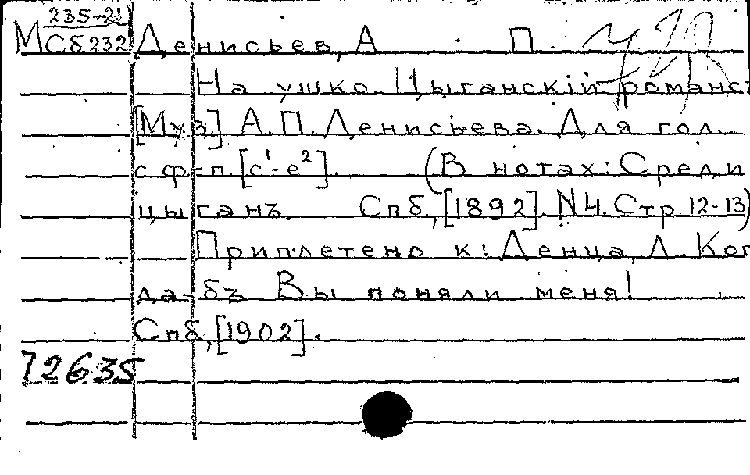 235-21
МСб232 Денисьев, А П.
На ушко. Цыганскій романс
[Муз.] А.П. Денисьева. Для гол.
с ф-п. [c¹-e²]. (В нотах: Среди
цыганъ. Спб, [1892]. №4. Стр 12-13)
Приплетено к: Денца, Л. Ког
да-бъ Вы поняли меня!
Спб, [1902].
72635